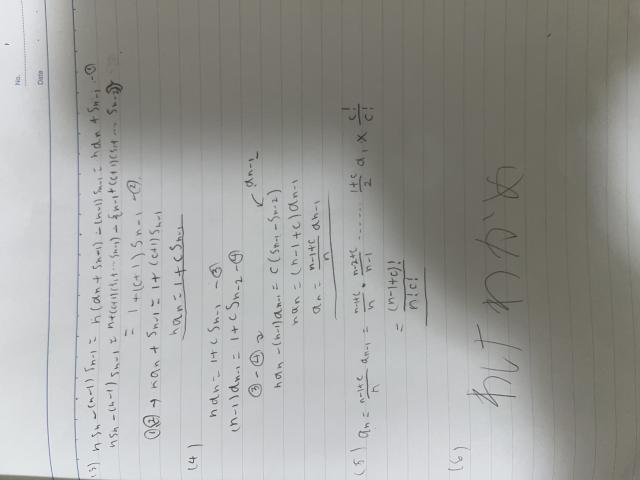 No.
Date
(3) nSn-(n-1)Sn-1 = n(an+Sn-1)-(n-1)Sn-1 = nan+Sn-1 -①
nSn-(n-1)Sn-1 = n+(c+1)(S1+… Sn-1)-{n-1+(c+1)(S1+… Sn-2)}
= 1+(c+1)Sn-1 -②
①② → nan+Sn-1 = 1+(c+1)Sn-1
nan = 1+cSn-1
(4)
nan = 1+cSn-1 -③
(n-1)an-1 = 1+cSn-2 -④
③-④
an-1
nan-(n-1)an-1 = c(Sn-1-Sn-2)
nan = (n-1+c)an-1
an = n-1+c/n an-1
(5) an = n-1+c/n an-1 = n-1+c/n · n-2+c/n-1 …… 1+c/2 a1 × c!/c!
= (n-1+c)!/n!c!
(6)